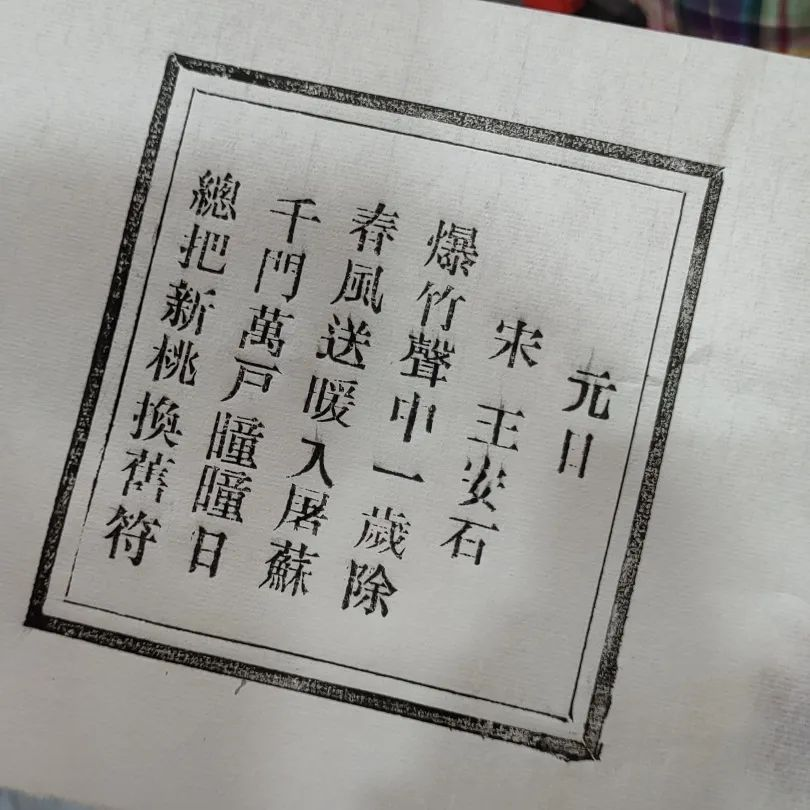 元日
宋 王安石
爆竹聲中一歲除
春風送暖入屠蘇
千門萬戸曈曈日
總把新桃換舊符